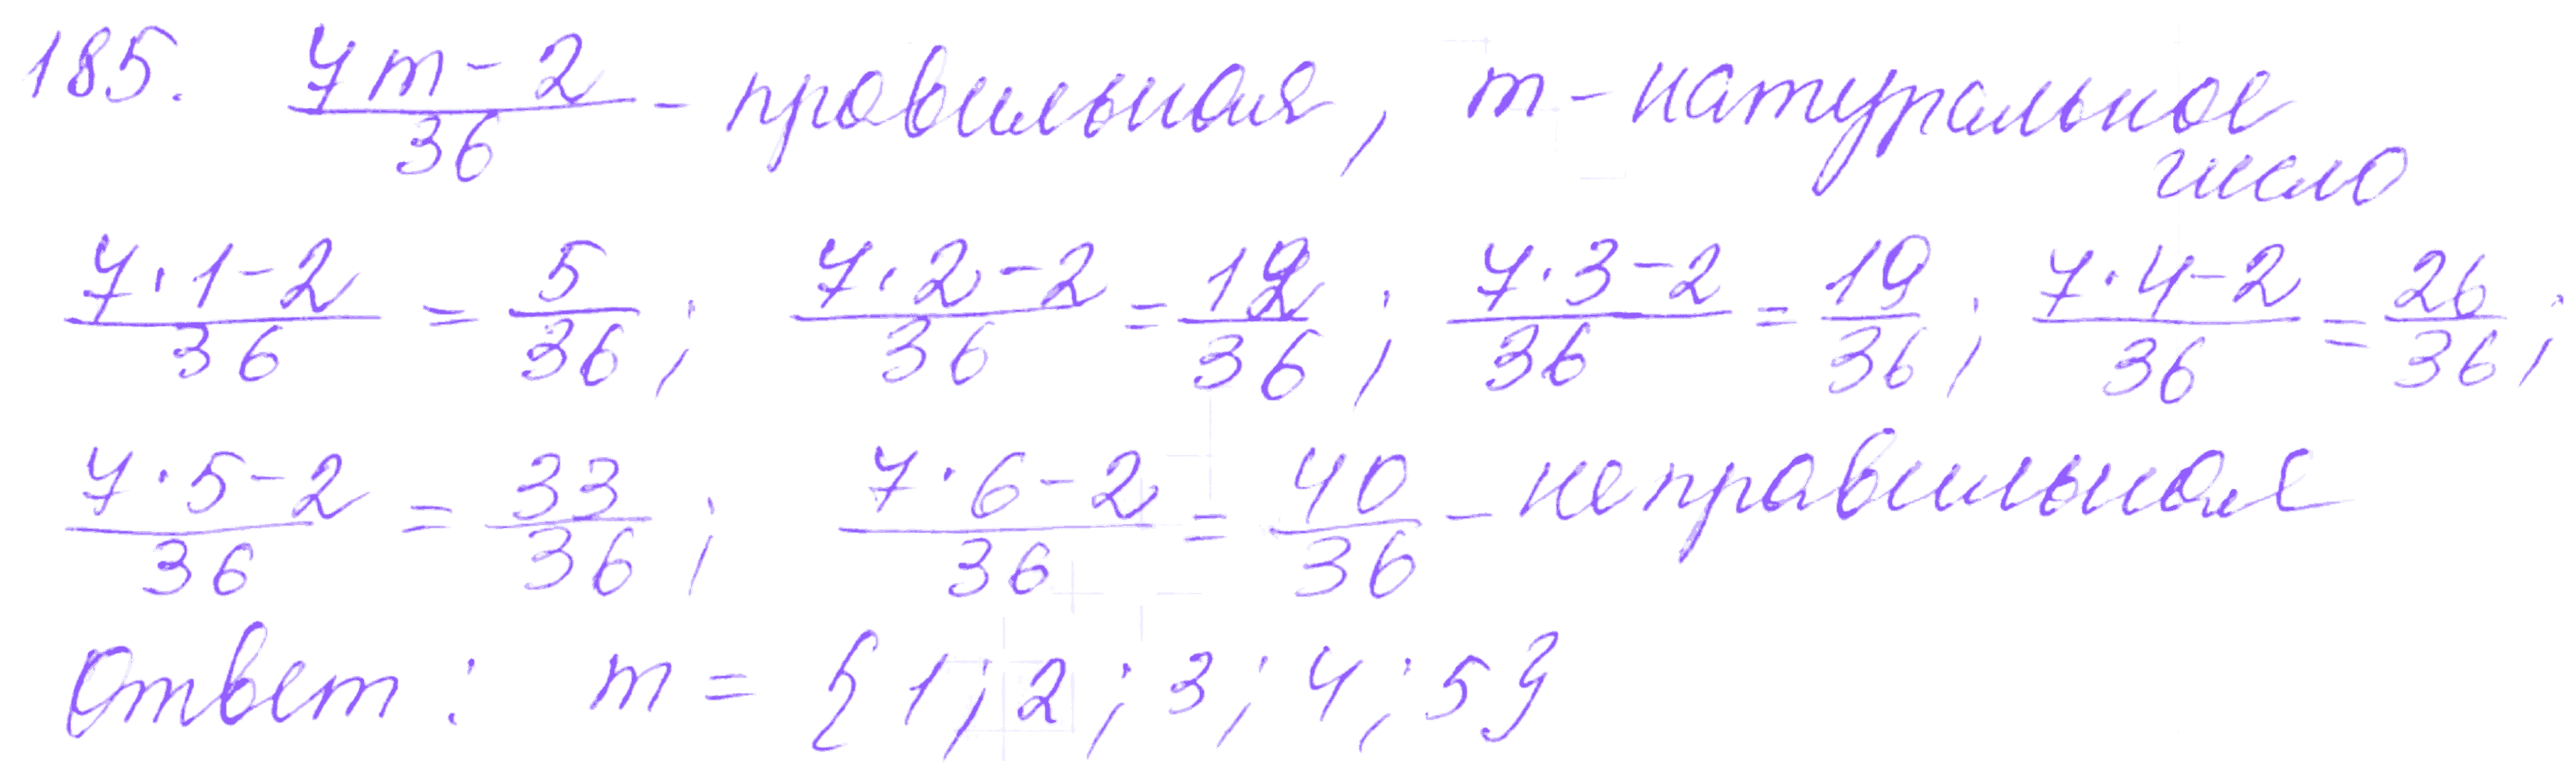 185. (7m-2)/36 - правильная, m - натуральное число
(7·1-2)/36 = 5/36; (7·2-2)/36 = 12/36; (7·3-2)/36 = 19/36; (7·4-2)/36 = 26/36;
(7·5-2)/36 = 33/36; (7·6-2)/36 = 40/36 - неправильная
Ответ: m = {1; 2; 3; 4; 5}